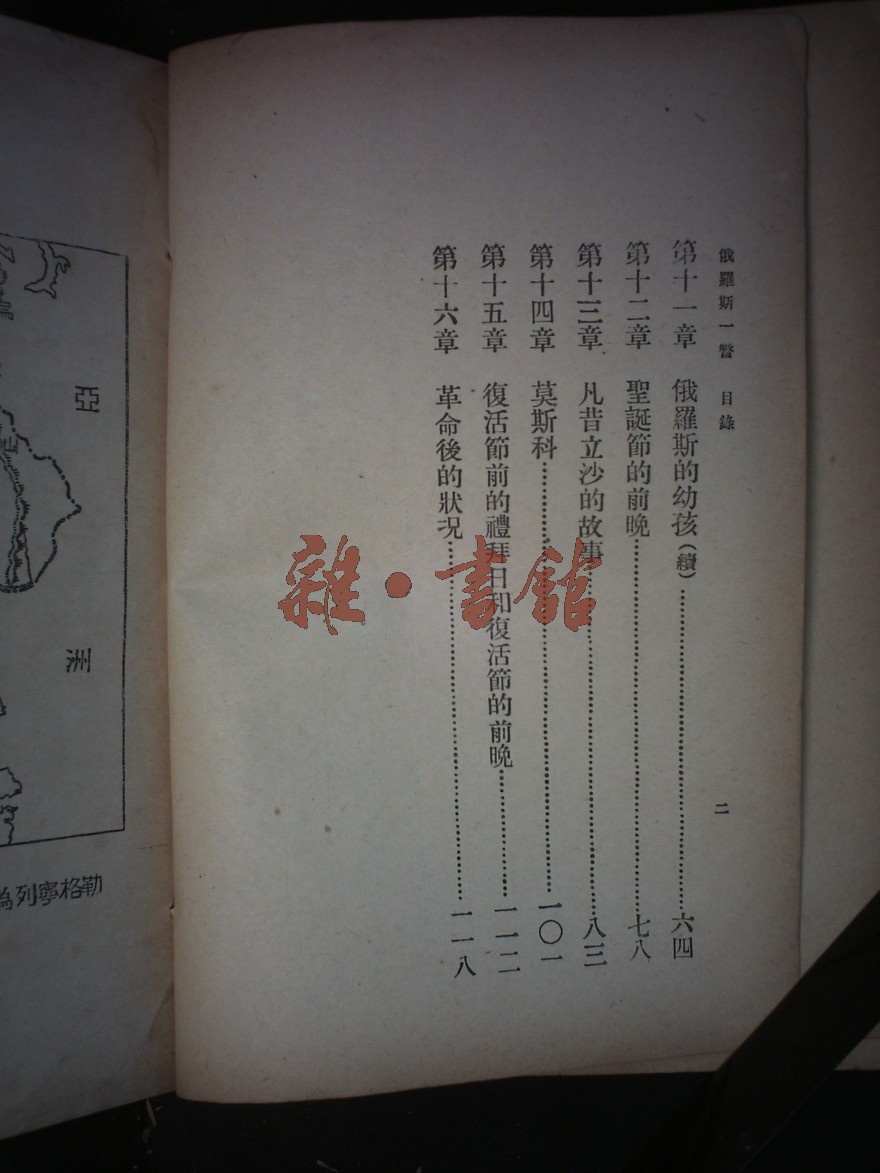 俄羅斯一瞥 目錄
二
第十一章 俄羅斯的幼孩(續)…………六四
第十二章 聖誕節的前晚…………七八
第十三章 凡昔立沙的故事…………八三
第十四章 莫斯科…………一〇一
第十五章 復活節前的禮拜日和復活節的前晚…………一一二
第十六章 革命後的狀況…………一一八
雜·書館
亞
洲
勒格寧列為